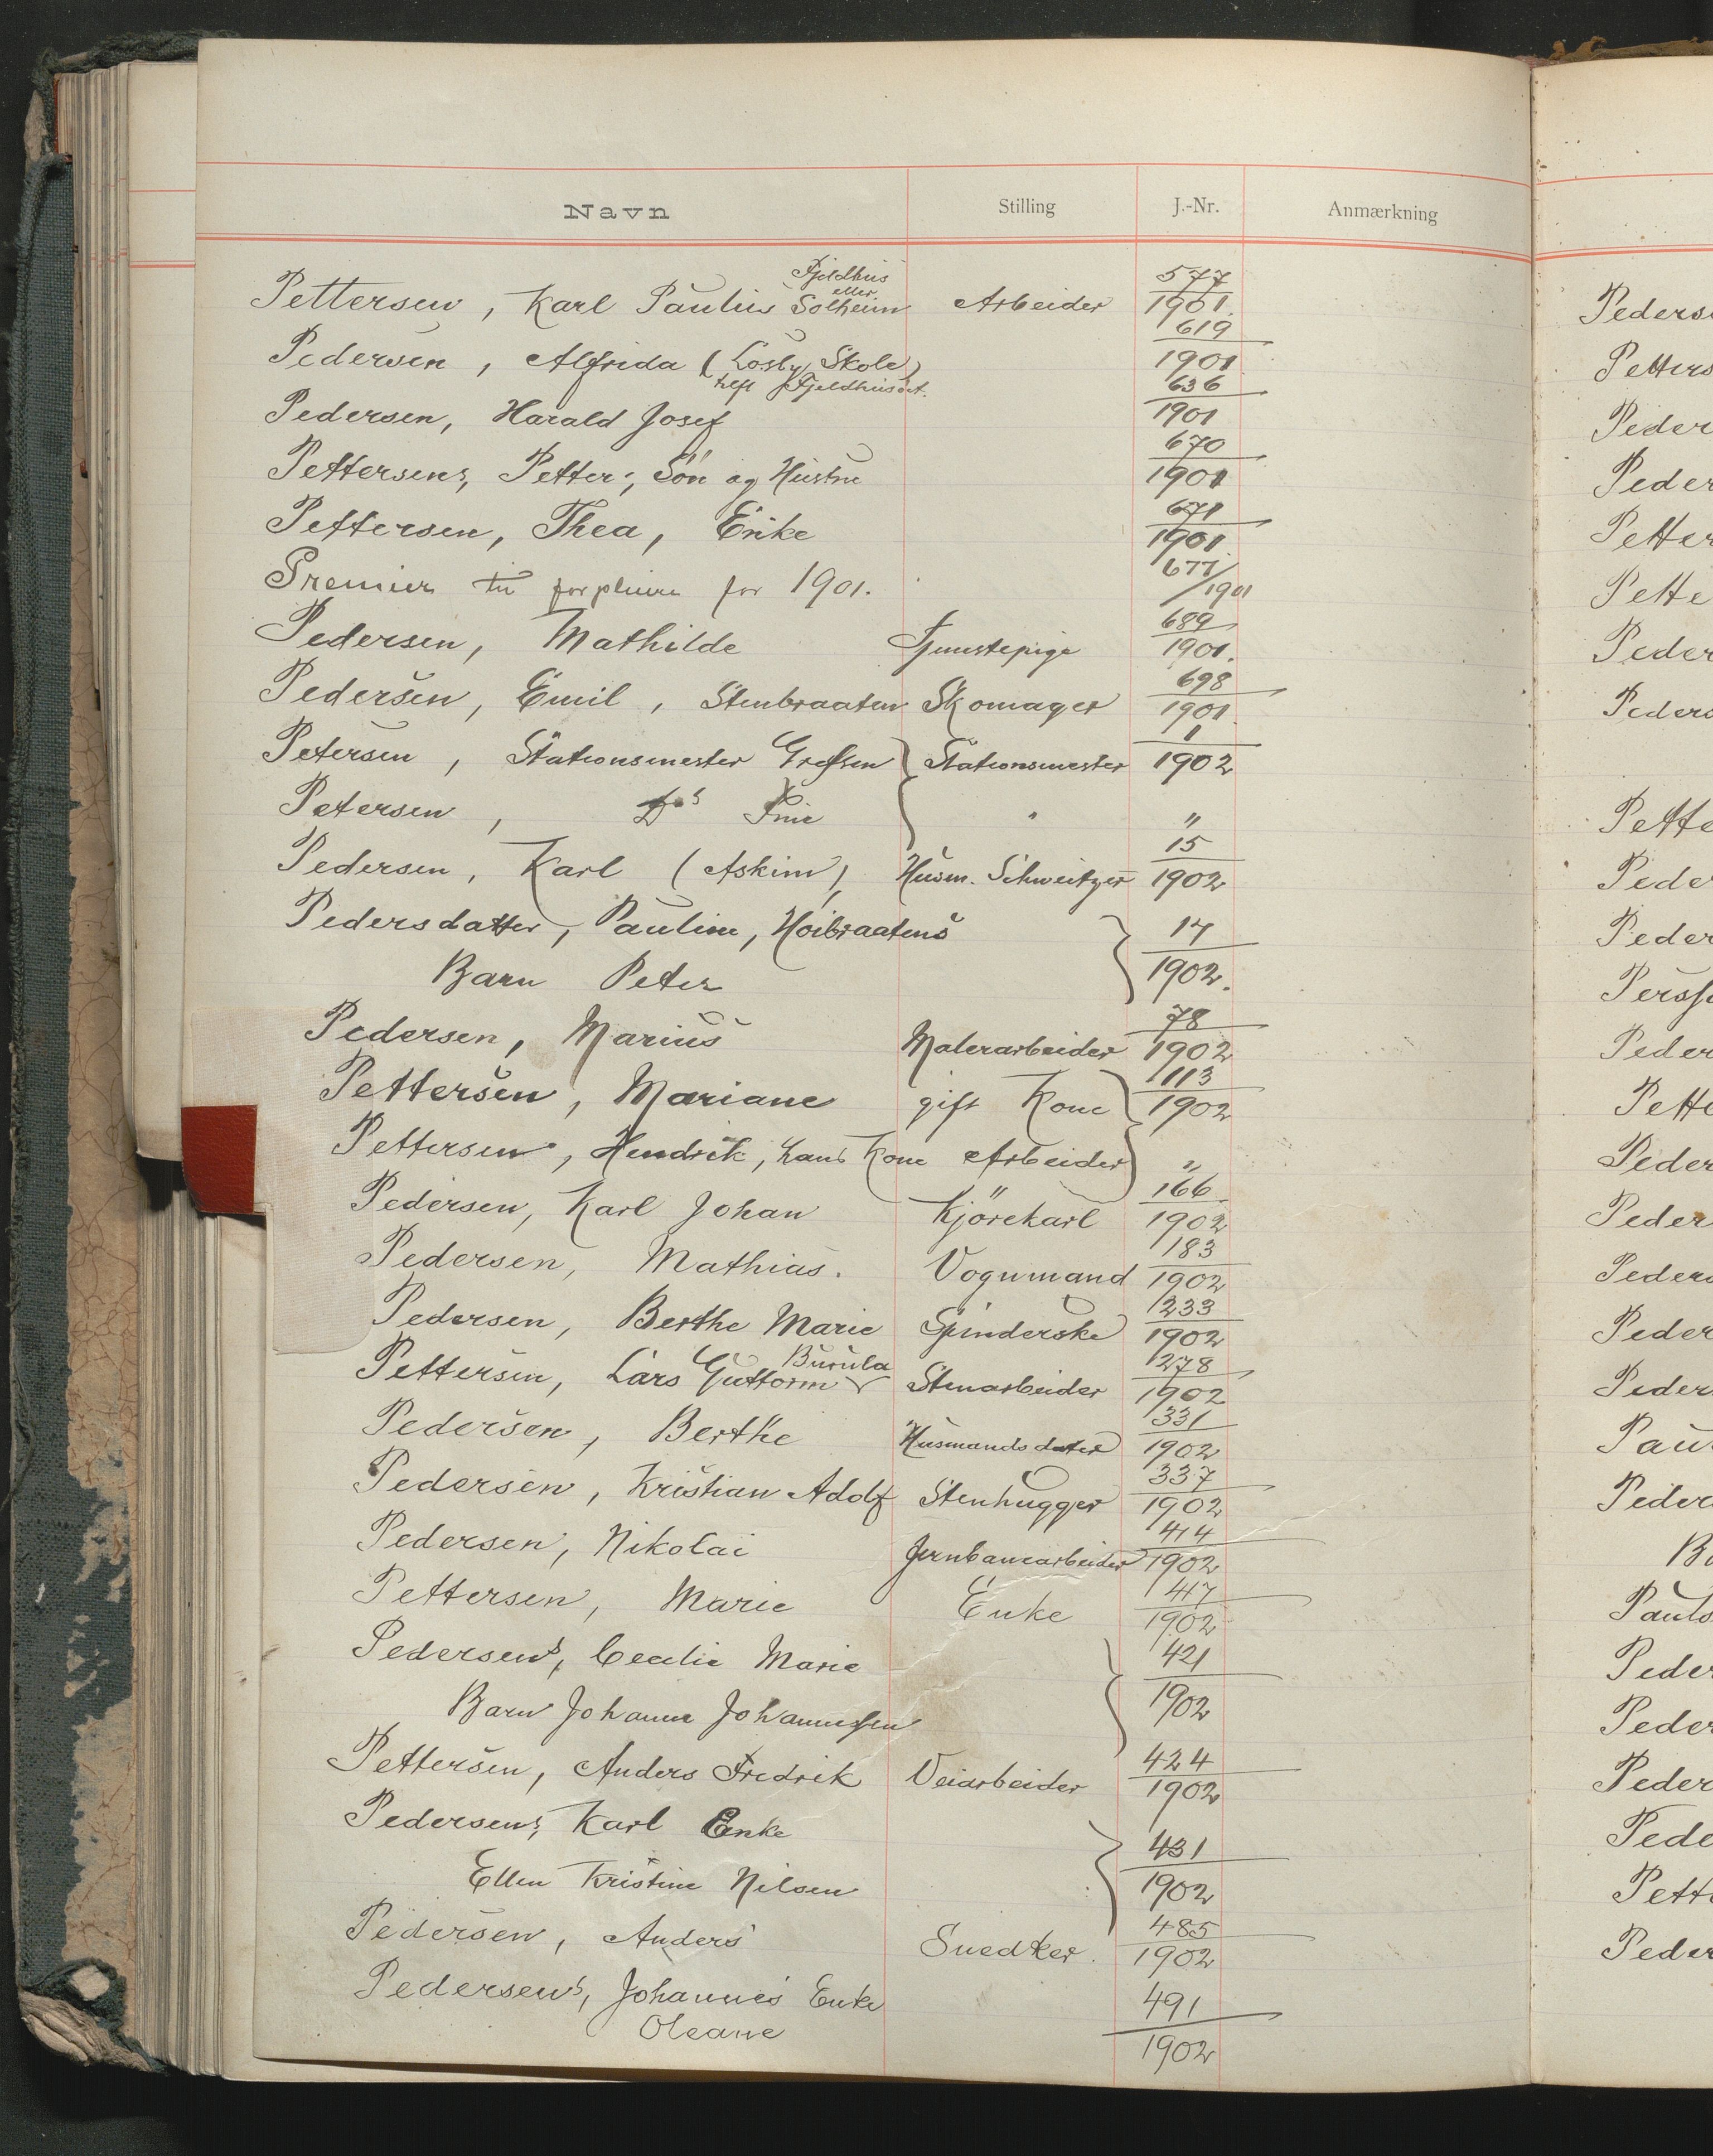 Navn Stilling J.-Nr. Anmærkning
Fjeldhus
eller
Pettersen, Karl Paulius Solheim Arbeider 577/1901
Pedersen, Alfrida (Losby Skole) 619/1901
helst Fjeldhus
Pedersen, Harald Josef 636/1901
Pettersens, Petter, Søn og Hustru 670/1901
Pettersen, Thea, Enke 671/1901
Premier til for 1901. 677/1901
Pedersen, Mathilde Tjenestepige 689/1901.
Pedersen, Emil, Stenbraaten Skomager 698/1901
Petersen, Stationsmester Grefsen Stationsmester 1/1902
Petersen, Do's Frue " "
Pedersen, Karl (Askim), Husm. Schweitzer 15/1902
Pedersdatter, Pauline, Høibraatens
Barn Peter 17/1902.
Pedersen, Marius Malerarbeider 78/1902
Pettersen, Mariane gift Kone 113/1902
Pettersen, Hendrik, hans Kone Arbeider "
Pedersen, Karl Johan Kjörekarl 166/1902
Pedersen, Mathias. Vognmand 183/1902
Pedersen, Berthe Marie Spinderske 233/1902
Burula
Pettersen, Lars Guttorm Stenarbeider 278/1902
Pedersen, Berthe Husmandsdatter 331/1902
Pedersen, Kristian Adolf Stenhugger 337/1902
Pedersen, Nikolai Jernbanearbeider 414/1902
Pettersen, Marie Enke 417/1902
Pedersens, Cecilie Marie
Barn Johanne Johannessen 421/1902
Pettersen, Anders Fredrik Veiarbeider 424/1902
Pedersens, Karl Enke
Ellen Kristine Nilsen 431/1902
Pedersen, Anders Snedker. 485/1902
Pedersens, Johannes Enke
Oleane 491/1902
Peders
Petters
Peder
Peder
Petter
Pette
Peder
Peders
Pette
Peder
Peder
Perss
Peder
Pette
Peder
Peder
Peder
Peder
Peder
Pau
Peder
B
Pauls
Peder
Peder
Peder
Pede
Pett
Peder